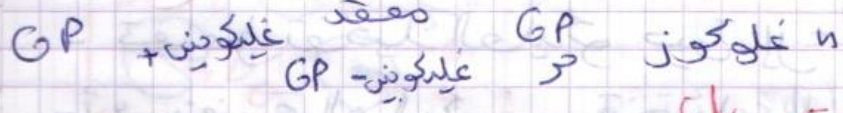 n غلوكوز GP معقد غليكوجين + GP
حر غليكوجين - GP